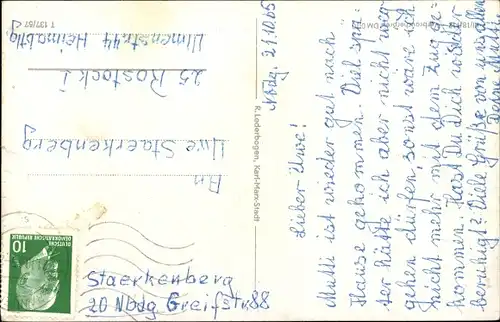 Nbdg. 21.10.65
Lieber Uwe!
Mutti ist wieder gut nach
Hause gekommen. Viel spä-
ter hätte ich aber nicht weg-
gehen dürfen, sonst wäre ich
nicht mehr mit dem Zug ge-
kommen. Hast Du Dich wieder
beruhigt? Viele Grüße von uns allen
Deine Mutti.
R. Lederbogen, Karl-Marx-Stadt
An
Uwe Staerkenberg
25 Rostock 1
Ulmenstr. 44
T 137/57
10
DEUTSCHE
DEMOKRATISCHE REPUBLIK
Staerkenberg
20 Nbdg Greifstr. 88